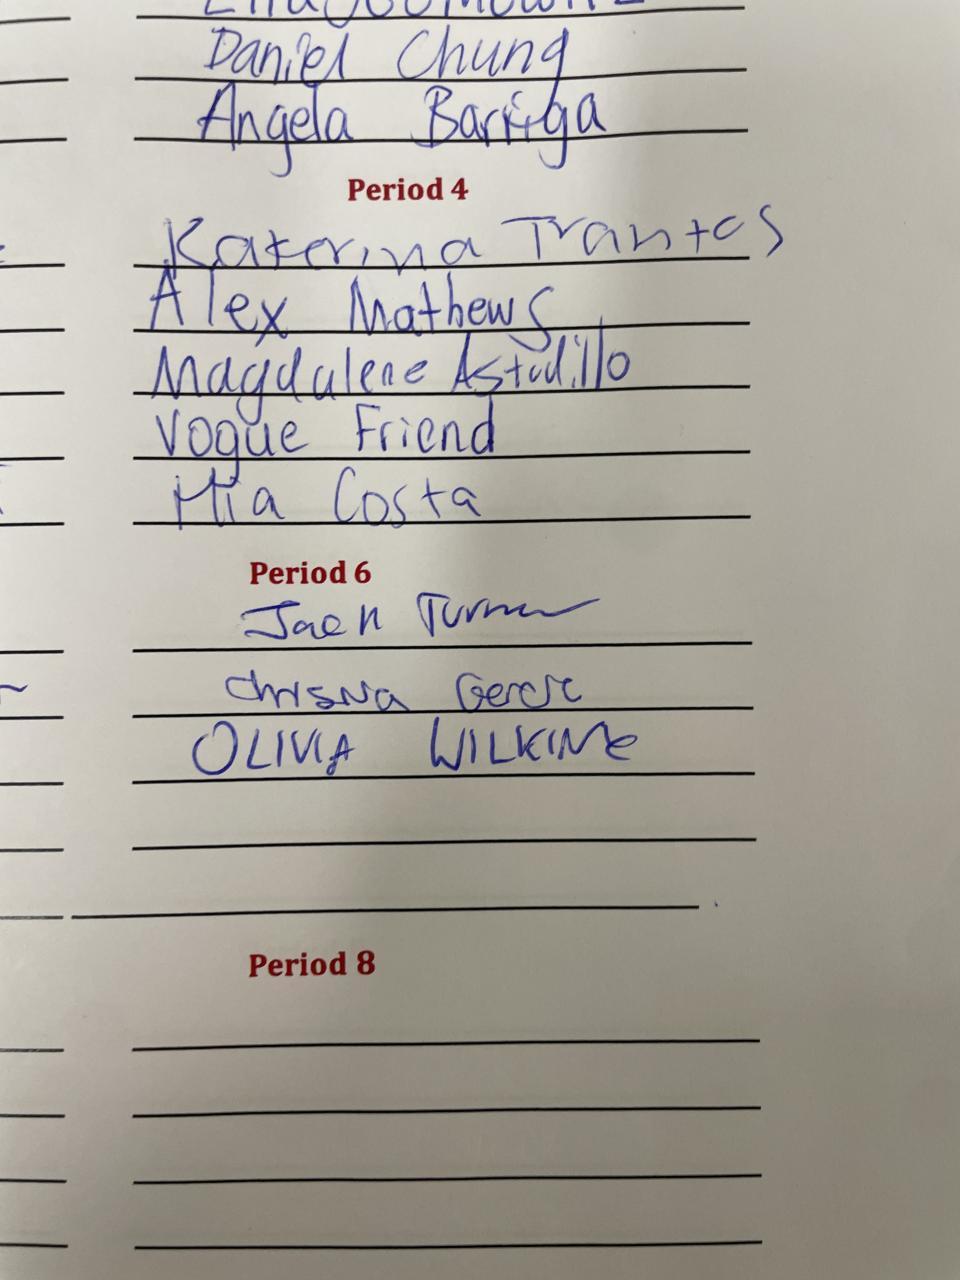 Daniel Chung
Angela Barriga
Period 4
Katerina Trantos
Alex Mathews
Magdalene Astudillo
Vogue Friend
Mia Costa
Period 6
Turner
OLIVIA
Period 8